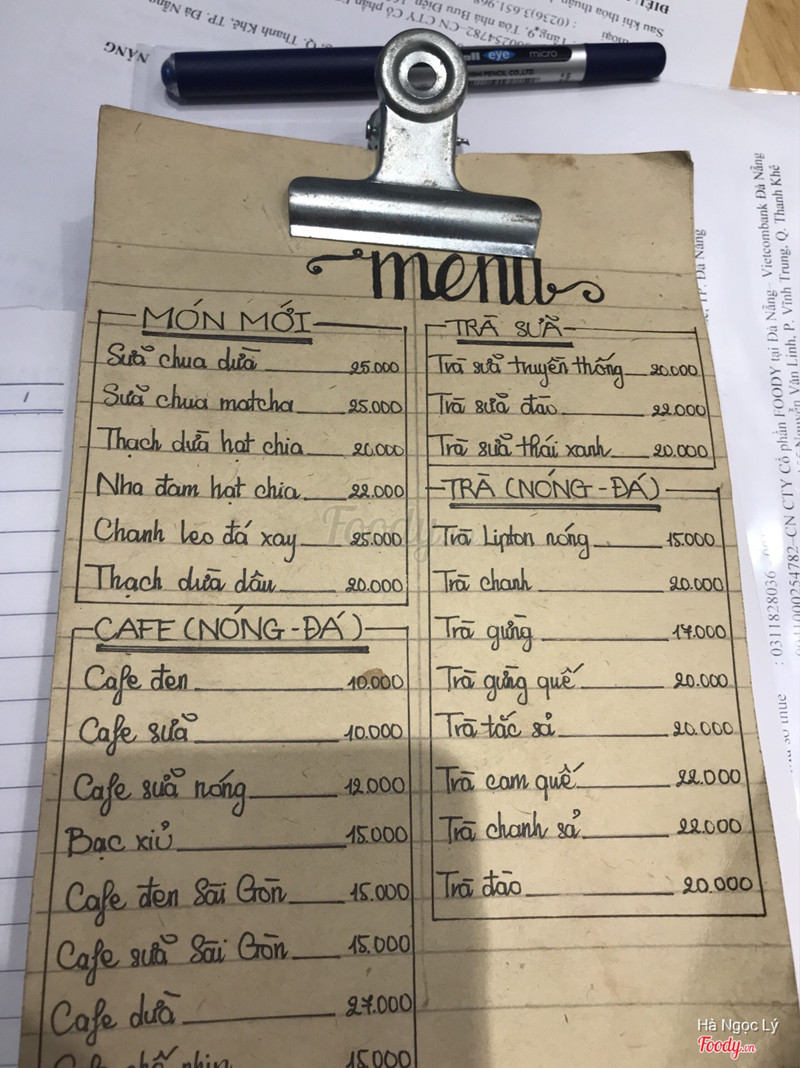 menu
MÓN MỚI
Sữa chua dừa 25.000
Sữa chua matcha 25.000
Thạch dừa hạt chia 20.000
Nha đam hạt chia 22.000
Chanh leo đá xay 25.000
Thạch dừa dâu 20.000
CAFE (NÓNG - ĐÁ)
Cafe đen 10.000
Cafe sữa 10.000
Cafe sữa nóng 12.000
Bạc xỉu 15.000
Cafe đen Sài Gòn 15.000
Cafe sữa Sài Gòn 15.000
Cafe dừa 27.000
15.000
TRÀ SỮA
Trà sữa truyền thống 20.000
Trà sữa đào 22.000
Trà sữa thái xanh 20.000
TRÀ (NÓNG - ĐÁ)
Trà Lipton nóng 15.000
Trà chanh 20.000
Trà gừng 17.000
Trà gừng quế 20.000
Trà tắc sả 20.000
Trà cam quế 22.000
Trà chanh sả 22.000
Trà đào 20.000
eye micro
NẴNG
Q. Thanh Khê, TP. Đà Nẵng
TP. Đà Nẵng
CN CTY Cổ phần FOODY tại Đà Nẵng - Vietcombank Đà Nẵng
Nguyễn Văn Linh, P. Vĩnh Trung, Q. Thanh Khê
: 0311828036
Foody
Hà Ngọc Lý
Foody.vn